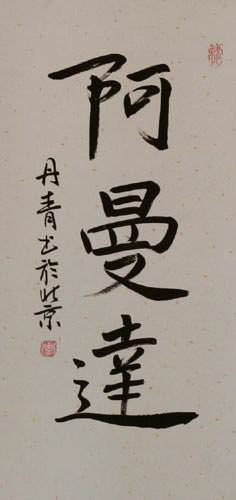 阿曼達
丹青书於北京